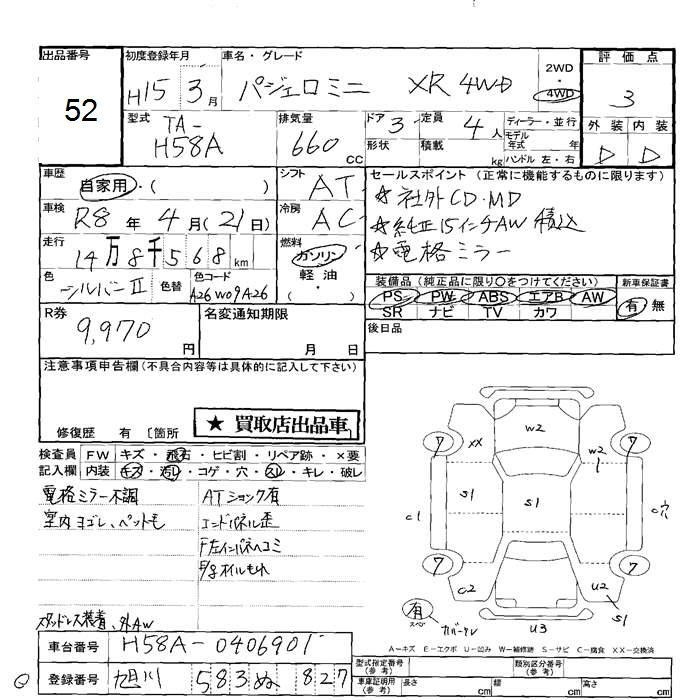 出品番号 初度登録年月 車名・グレード 2WD・4WD 評価点
52 H15 3月 パジェロミニ XR 4WD 3
型式 排気量 ドア 3 定員 4人 ディーラー・並行 外装 内装
TA-H58A 660cc 形状 積載 kg モデル年式 年 ハンドル 左・右 D D
車歴 自家用・( ) シフト AT セールスポイント (正常に機能するものに限ります)
車検 R8年 4月(21日) 冷房 AC ★社外CD・MD
★純正15インチAW積込
走行 14万8千568km 燃料 ガソリン 軽油 ・( ) ★電格ミラー
色 シルバーII 色替 色コード A26W09A26
装備品 (純正品に限り○をつけてください) 新車保証書
PS PW ABS エアB AW 有 無
SR ナビ TV カワ
R券 9,970円 名変通知期限 月 日 後日品
注意事項申告欄(不具合内容等は具体的に記入して下さい)
修復歴 有 〔箇所
★ 買取店出品車
検査員記入欄 FW キズ・飛石・ヒビ割・リペア跡・×要
内装 キズ・汚レ・コゲ・穴・スレ・キレ・破レ
電格ミラー不調 ATショック有
室内ヨゴレ、ペット毛 エンドパネル歪
F左インパネヘコミ
オイルもれ
スタッドレス装着、外AW
W2
XX W2 1
7 7
S1 S1 S1
C1 C穴
7 7
C2 U2
S1
U3
有 スペア カバーナシ
A－キズ E－エクボ U－凹み W－補修跡 S－サビ C－腐食 XX－交換済
車台番号 H58A-0406901
登録番号 旭川 583 ぬ 827
型式指定番号(参考) 類別区分番号(参考)
車庫証明用(参考) 長さ cm 幅 cm 高さ cm